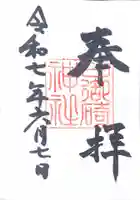 奉拝
日御碕
神社
令和七年六月七日